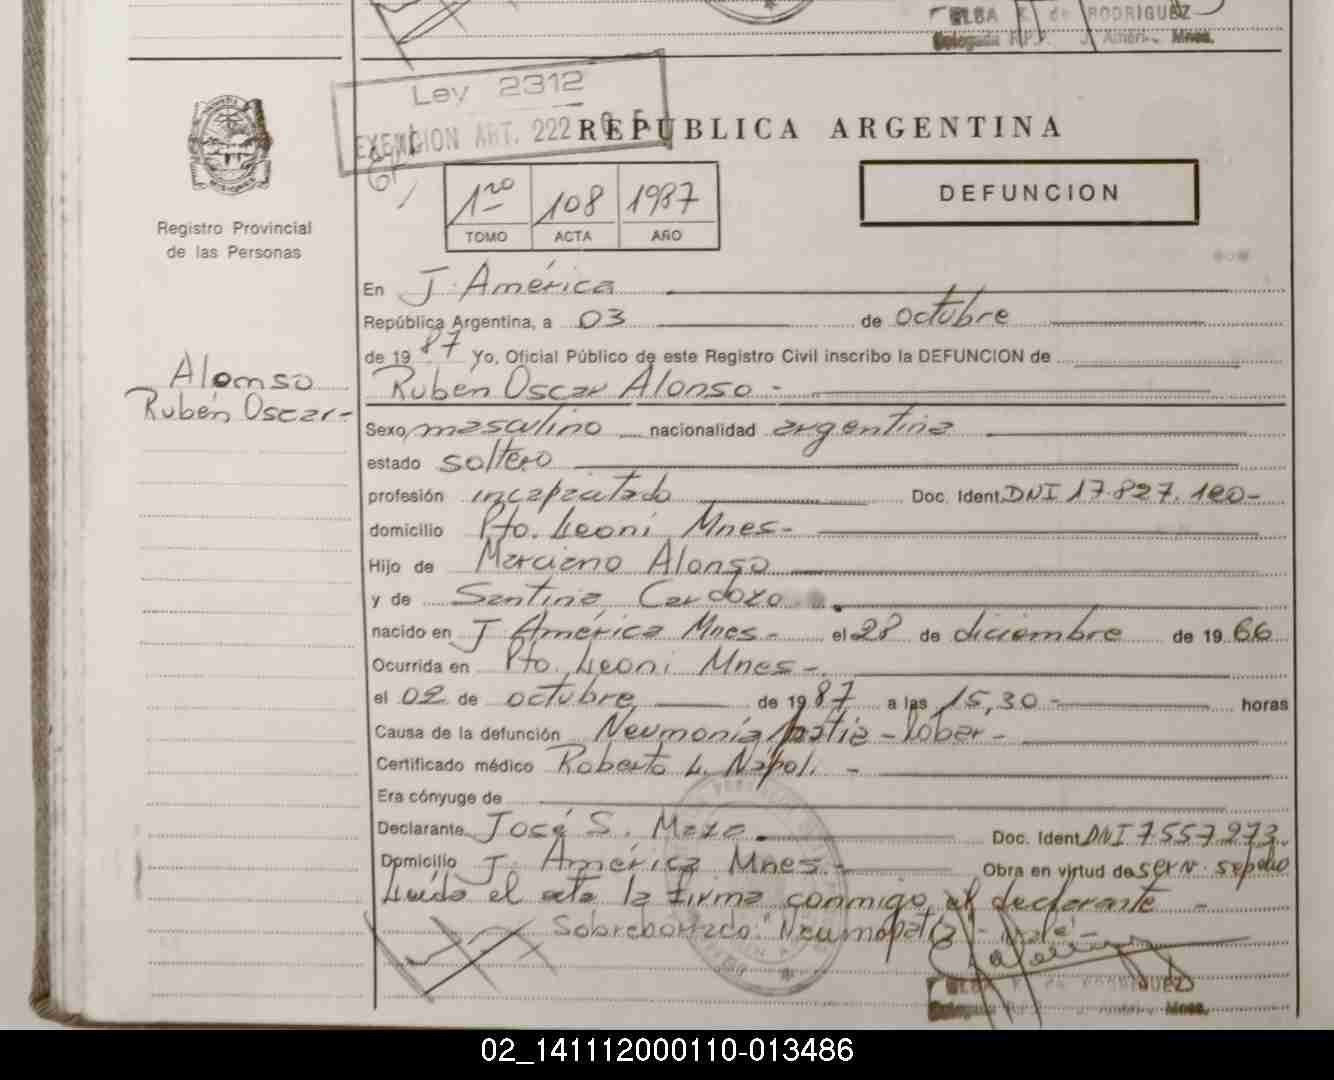 ELBA K. de RODRIGUEZ
Delegada R.P.P. J. Améri. Mnes.
Ley 2312
EXENCION ART. 222
REPUBLICA ARGENTINA
1ro 108 1987
TOMO ACTA AÑO
DEFUNCION
Registro Provincial
de las Personas
En J. América
República Argentina, a 03 de octubre
de 19 87 Yo, Oficial Público de este Registro Civil inscribo la DEFUNCION de
Alonso
Rubén Oscar-
Rubén Oscar Alonso -
Sexo masculino nacionalidad argentina
estado soltero
profesión incapacitado Doc. Ident. DNI 17.827.120-
domicilio Pto. Leoni Mnes-
Hijo de Marciano Alonso
y de Santina Cardozo
nacido en J. América Mnes- el 28 de diciembre de 19 66
Ocurrida en Pto. Leoni Mnes-
el 02 de octubre de 19 87 a las 15,30- horas
Causa de la defunción Neumonía lobar -
Certificado médico Roberto L. Nápoli -
Era cónyuge de
Declarante José S. Maza Doc. Ident. DNI 7557273
Domicilio J. América Mnes.- Obra en virtud de serv. sepelio
Leída el acta la firma conmigo el declarante -
Sobreborrado: "Neumopatía" - Vale -
ELBA K. DE RODRIGUEZ
Delegada R.P.P. J. Améri. Mnes.
02_141112000110-013486